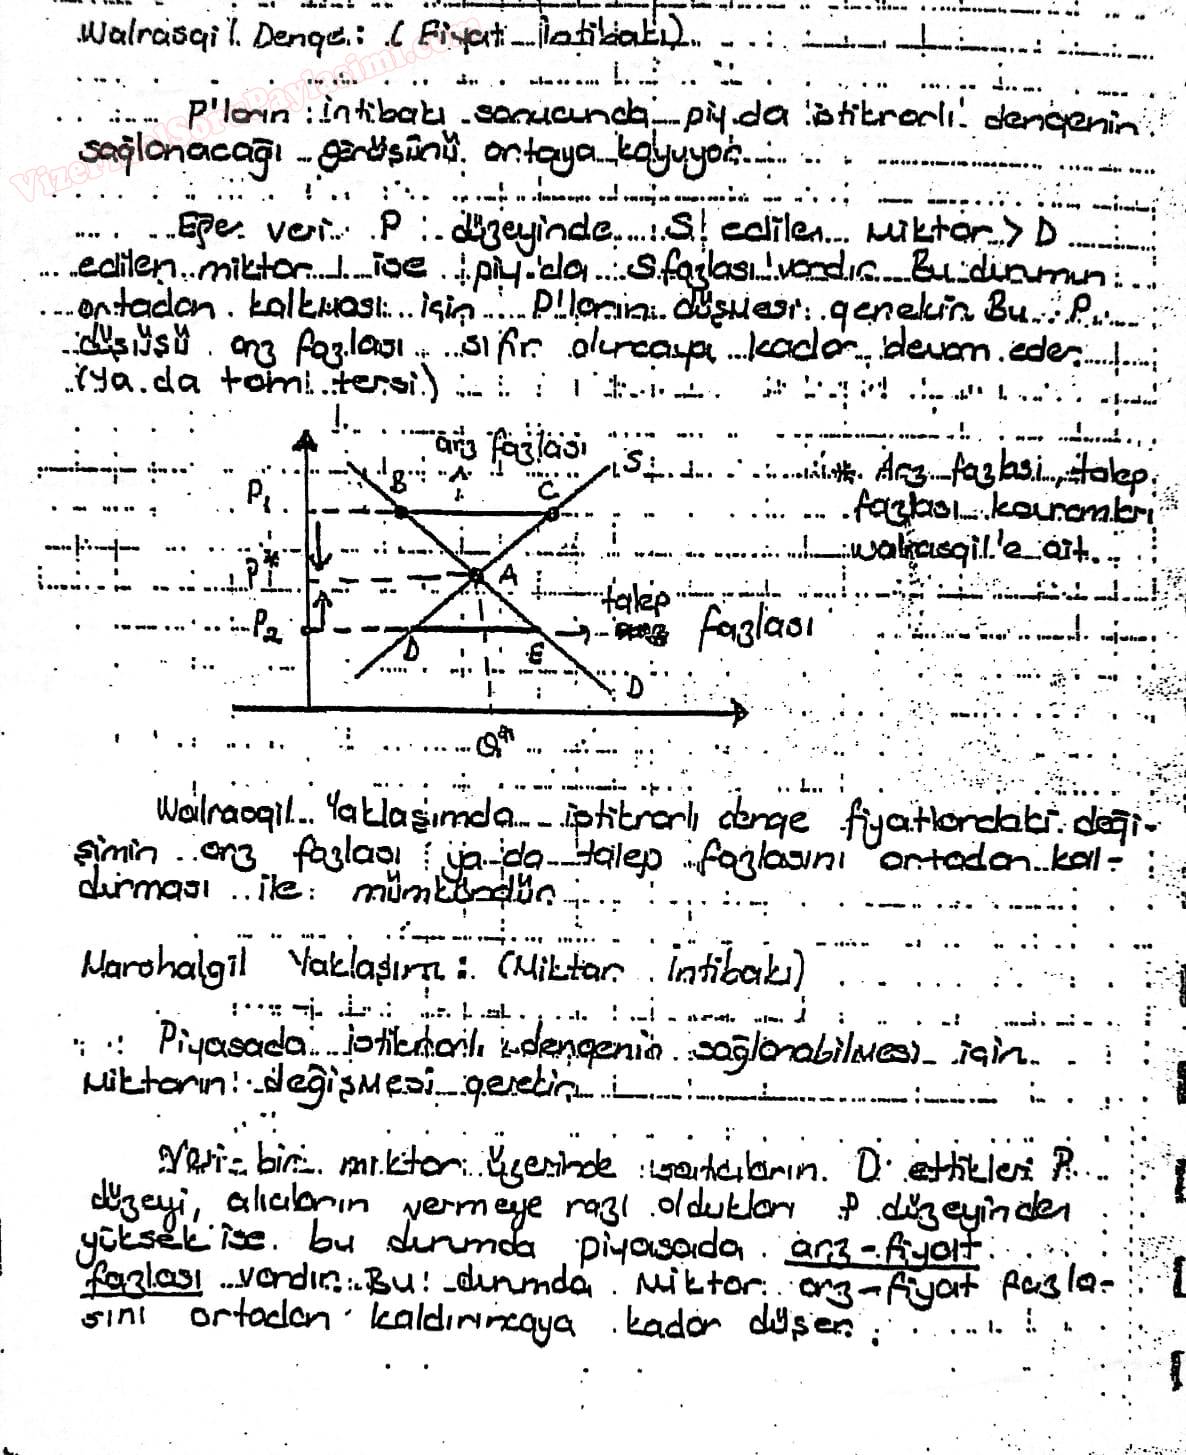 Walrasgil Denge: (Fiyat İntibakı)
VizeFinalSoruPaylasimi.com
P'ların intibakı sonucunda piy.da istikrarlı dengenin
sağlanacağı görüşünü ortaya koyuyor.
Eğer veri P düzeyinde S edilen miktar > D
edilen miktar ise piy.da S fazlası vardır. Bu durumun
ortadan kalkması için P'ların düşmesi gerekir. Bu P
düşüşü arz fazlası sıfır oluncaya kadar devam eder.
(ya da tam tersi)
arz fazlası
S
B
C
P1
* Arz fazlası, talep
fazlası kavramları
walrasgil'e ait.
P*
A
talep
fazlası
P2
D
E
D
Q*
Walrasgil Yaklaşımda istikrarlı denge fiyatlardaki deği-
şimin arz fazlası ya da talep fazlasını ortadan kal-
dırması ile mümkündür.
Marshalgil Yaklaşım: (Miktar İntibakı)
Piyasada istikrarlı dengenin sağlanabilmesi için
Miktarın değişmesi gerekir.
Veri bir miktar üzerinde satıcıların D ettikleri P
düzeyi, alıcıların vermeye razı oldukları P düzeyinden
yüksek ise bu durumda piyasada arz-fiyat
fazlası vardır. Bu durumda Miktar arz-fiyat fazla-
sını ortadan kaldırıncaya kadar düşer.